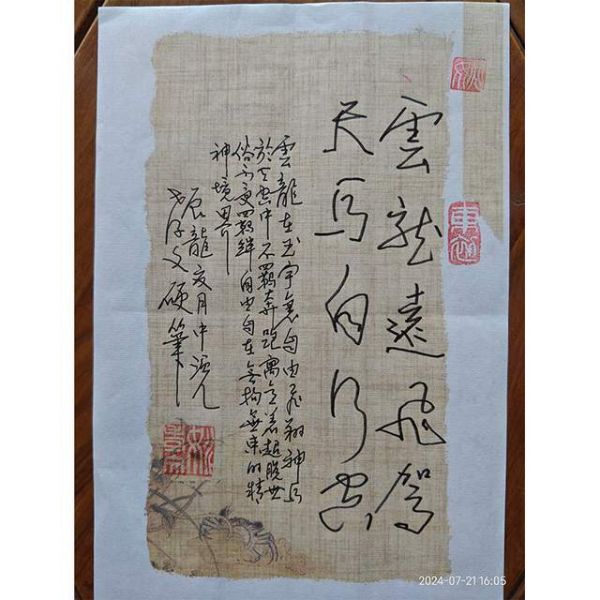 雲龍遠飛駕
天馬自行空
雲龍在玉宇裏自由飛翔神馬
於天空中不羈奔跑寓意着超脫世
俗不受羈絆自由自在無拘無束的精
神境界
辰龍夏月中浣
文硬筆
2024-07-21 16:05